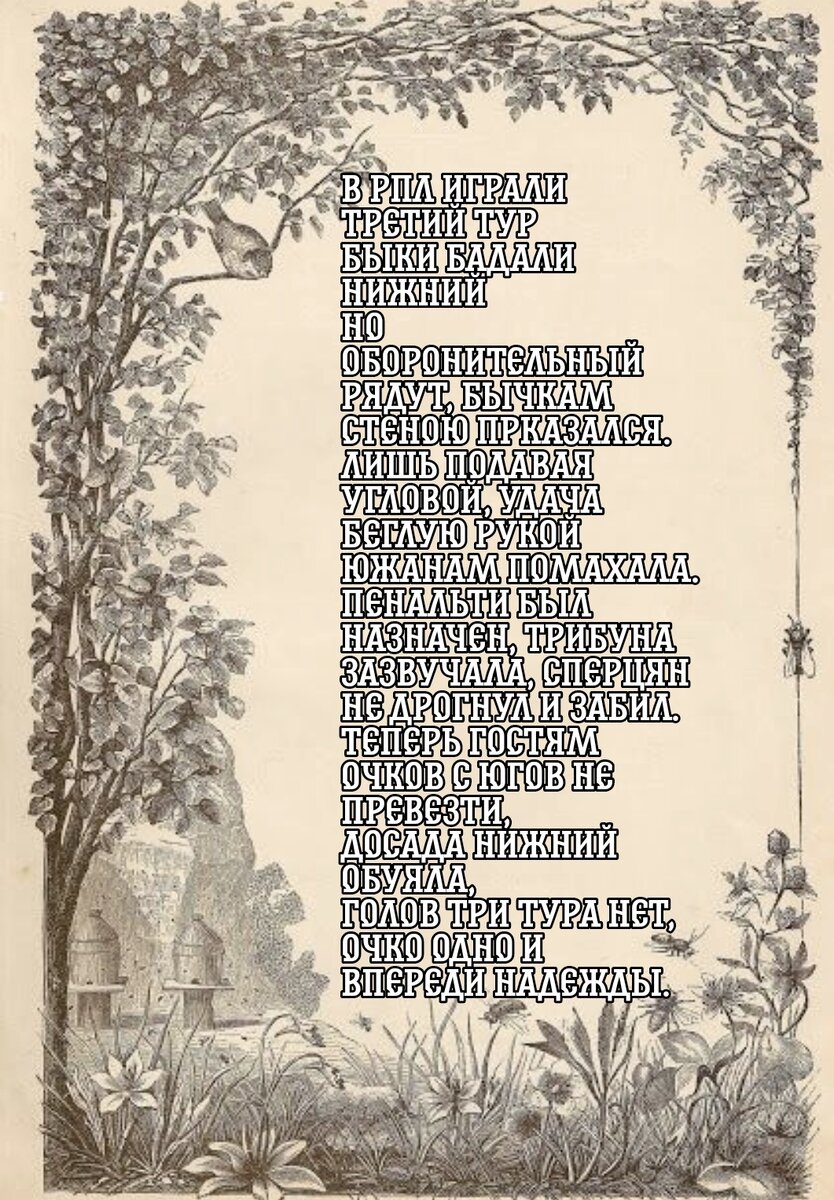 В РПЛ ИГРАЛИ
ТРЕТИЙ ТУР
БЫКИ БАДАЛИ
НИЖНИЙ
НО
ОБОРОНИТЕЛЬНЫЙ
РЯДУТ, БЫЧКАМ
СТЕНОЮ ПРКАЗАЛСЯ.
ЛИШЬ ПОДАВАЯ
УГЛОВОЙ, УДАЧА
БЕГЛУЮ РУКОЙ
ЮЖАНАМ ПОМАХАЛА.
ПЕНАЛЬТИ БЫЛ
НАЗНАЧЕН, ТРИБУНА
ЗАЗВУЧАЛА, СПЕРЦЯН
НЕ ДРОГНУЛ И ЗАБИЛ.
ТЕПЕРЬ ГОСТЯМ
ОЧКОВ С ЮГОВ НЕ
ПРЕВЕЗТИ,
ДОСАДА НИЖНИЙ
ОБУЯЛА,
ГОЛОВ ТРИ ТУРА НЕТ,
ОЧКО ОДНО И
ВПЕРЕДИ НАДЕЖДЫ.